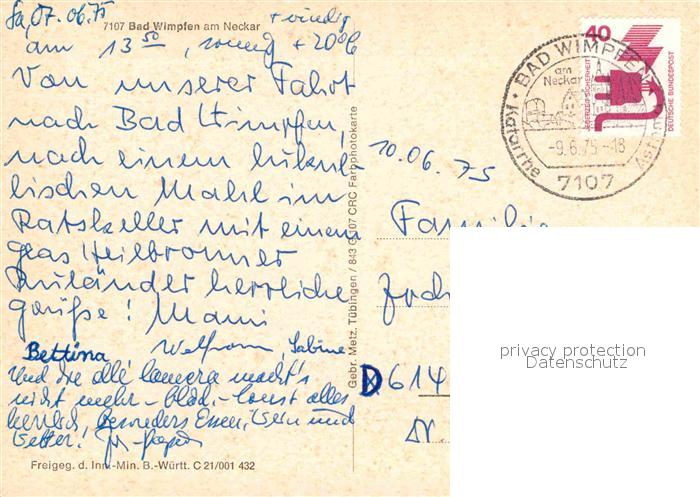 Sa, 07.06.75
7107 Bad Wimpfen am Neckar
+ windig
am 13 50, sonnig + 20°C
Von unserer Fahrt
nach Bad Wimpfen,
nach einem lukul-
lischen Mahl im
Ratskeller mit einem
Glas Heilbronner
Ruländer herrliche
Grüße! Mami
Bettina Wolfram, Sabine
Und die alte Kamera macht's
nicht mehr - blöd - sonst alles
herrlich, besonders Essen, Wein und
Wetter!
Freigeg. d. Inn.-Min. B.-Württ. C 21/001 432
Gebr. Metz, Tübingen / 843 G 7107 CRC Farbphotokarte
40
UNFALLSICHERHEIT
DEUTSCHE BUNDESPOST
BAD WIMPFEN
am
Neckar
-9.6.75-18
7107
Katarrhe
10.06.75
Familie
D 614
privacy protection
Datenschutz